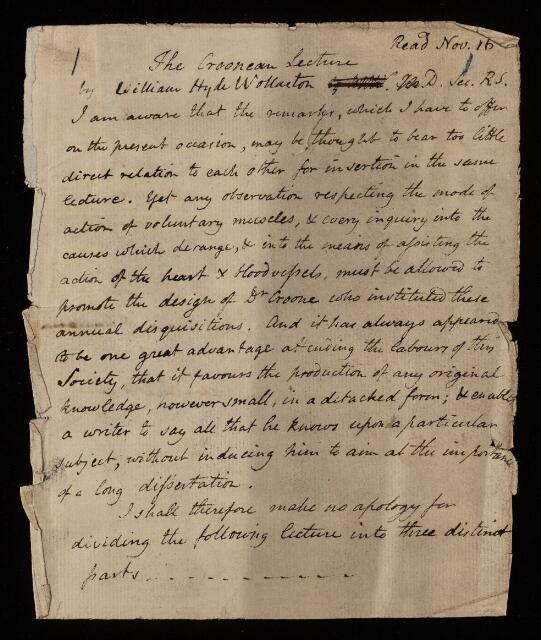 Read Nov. 16
1
The Croonean Lecture
by William Hyde Wollaston M.D. Sec. R.S.
I am aware that the remarks, which I have to offer
on the present occasion, may be thought to bear too little
direct relation to each other for insertion in the same
lecture. Yet any observation respecting the mode of
action of voluntary muscles, & every inquiry into the
causes which derange, & into the means of assisting the
action of the heart & blood vessels, must be allowed to
promote the design of Dr Croone who instituted these
annual disquisitions. And it has always appeared
to be one great advantage attending the labours of this
Society, that it favours the production of any original
knowledge, however small, in a detached form; & enables
a writer to say all that he knows upon a particular
subject, without inducing him to aim at the importance
of a long dissertation.
I shall therefore make no apology for
dividing the following lecture into three distinct
parts